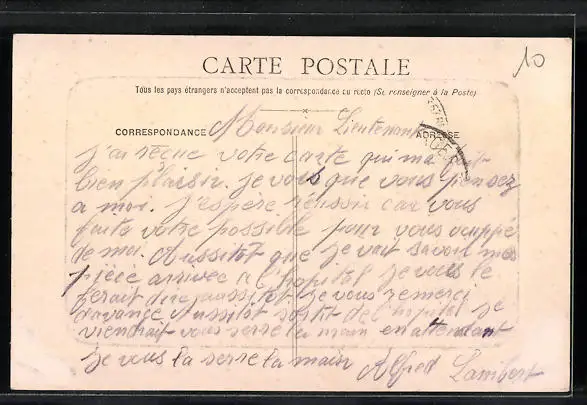 10
CARTE POSTALE
Tous les pays étrangers n'acceptent pas la correspondance au recto (Se renseigner à la Poste)
CORRESPONDANCE Monsieur Lieutenant
ADRESSE
j'ai reçue votre carte qui ma fait
bien plaisir. je vois que vous pensez
a moi. j'espere réussir car vous
faite votre possible pour vous ouppé
de moi. Aussitot que je vait savoir mes
pièce arrivée a l'hopital je vous le
ferait dire aussitot je vous remerci
davance Aussitot sortit de l'hopital je
viendrait vous serre la main en attendant
je vous la serre la main Alfred Lambert